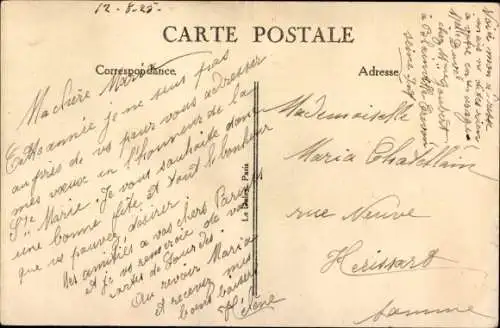 12-8-25-
CARTE POSTALE
Correspondance
Adresse
Ma chère Maria
Cette année je ne suis pas
auprès de vs pour vous adresser
mes vœux en l'honneur de la
Ste Marie. Je vous souhaite donc
une bonne fête et tout le bonheur
que vs pouvez désirer.
Mes amitiés a vos chers Parents
et je vs remercie de vos
cartes de Lourdes.
Au revoir Maria
et recevez mes
bons baisers
Hélène
Le Deley, Paris
Mademoiselle
Maria Chatellain
rue Neuve
Herissart
Somme
Voici mon adresse